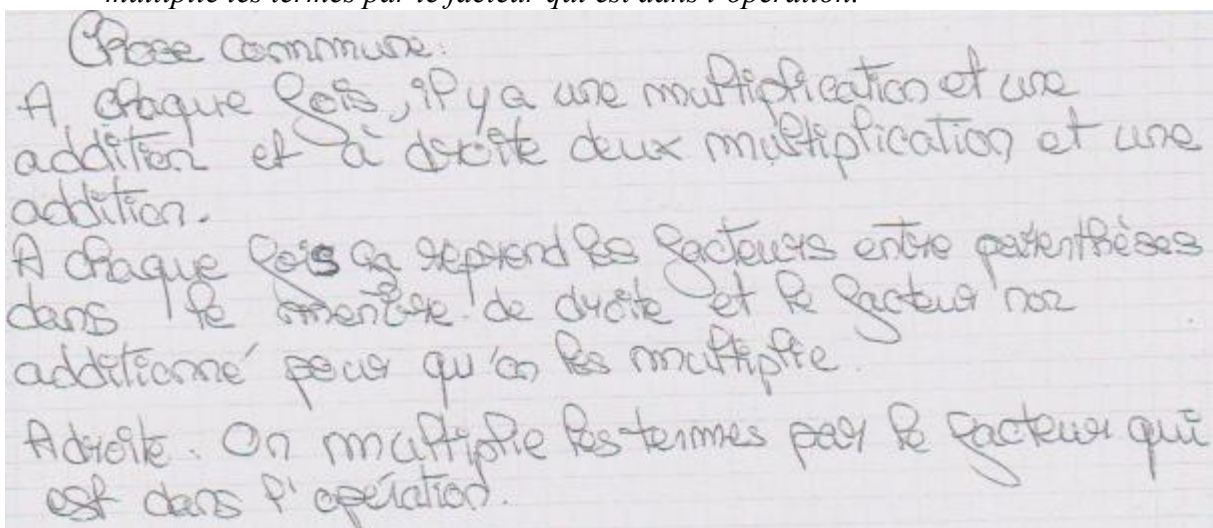 multiplie les termes par le facteur qui est dans l'opération.
Chose commune:
A chaque fois, il y a une multiplication et une
addition et à droite deux multiplication et une
addition.
A chaque fois ça reprend les facteurs entre parenthèses
dans le membre de droite et le facteur non
additionné pour qu'on les multiplie.
Adroite. On multiplie les termes par le facteur qui
est dans l'opération.